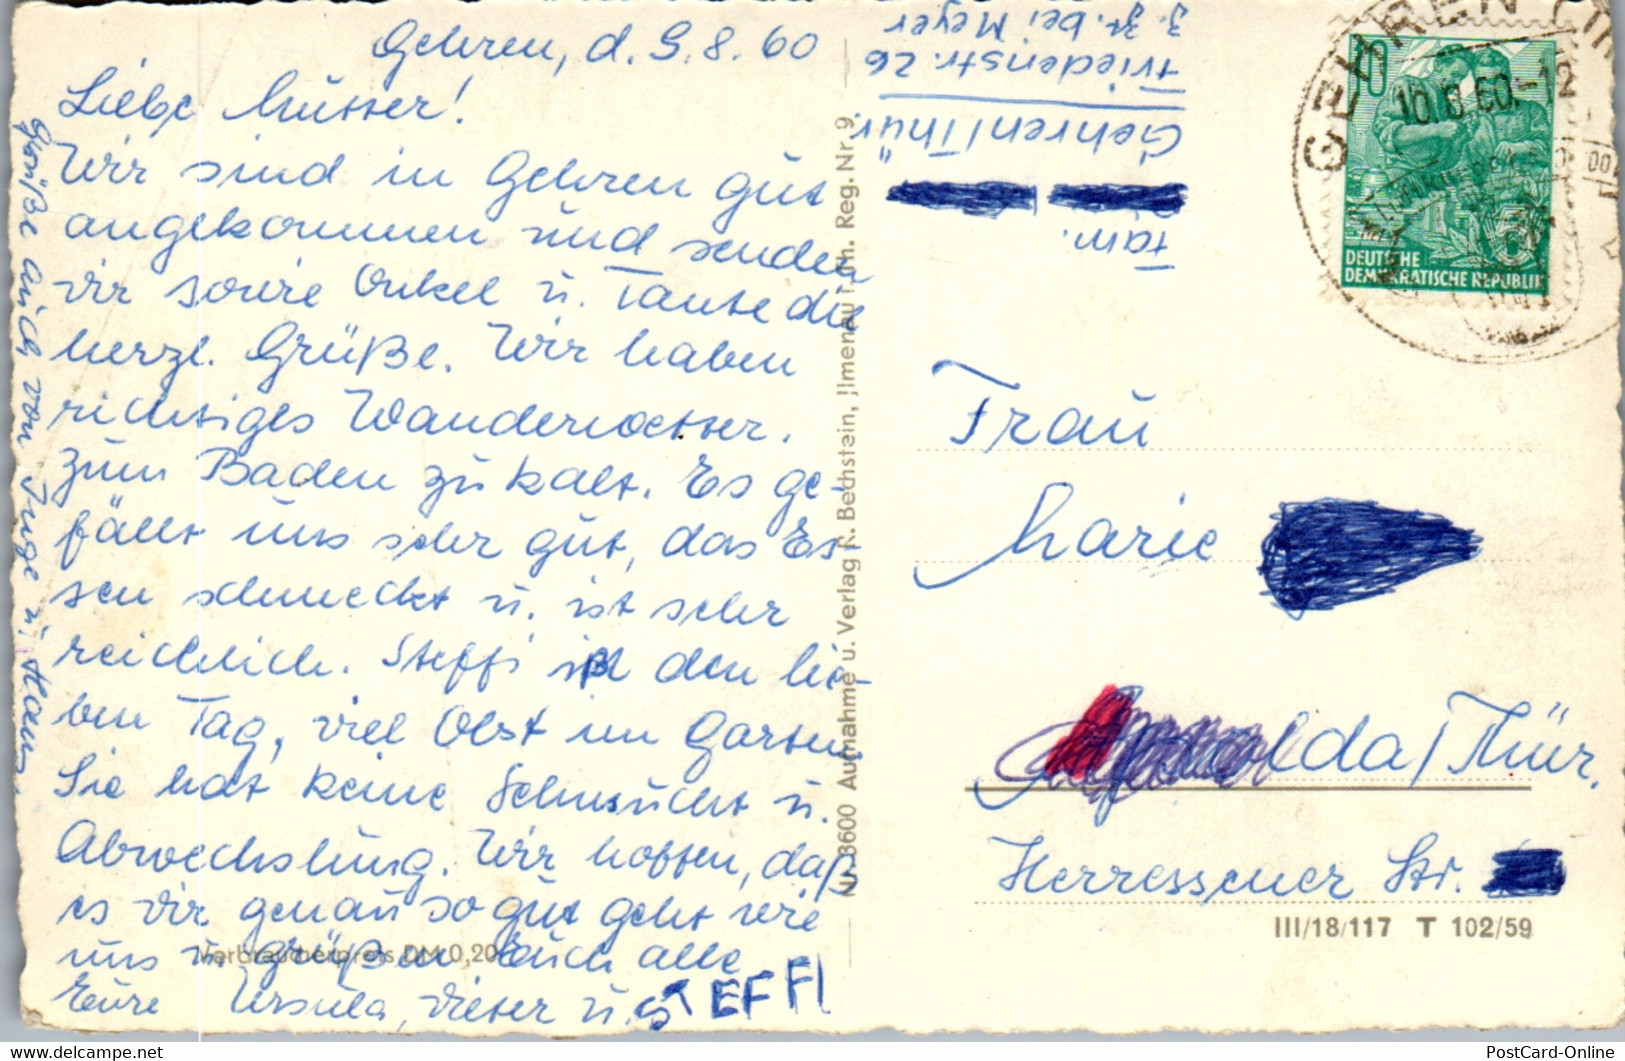 Gehren, d. 9.8.60
Liebe Mutter!
Wir sind in Gehren gut
angekommen und senden
dir sowie Onkel u. Tante die
herzl. Grüße. Wir haben
richtiges Wanderwetter.
zum Baden zu kalt. Es ge-
fällt uns sehr gut, das Es-
sen schmeckt u. ist sehr
reichlich. Steffi ißt den lie-
ben Tag, viel Obst im Garten.
Sie hat keine Sehnsucht u.
Abwechslung. Wir hoffen, daß
es dir genau so gut geht wie
uns u. grüßen Euch alle
Eure Ursula, Dieter u. STEFFI
Grüße auch von Inge u. Hans
Verbraucherpreis DM 0,20
Nr. 3600 Aufnahme u. Verlag R. Bechstein, Jlmenau i. Th. Reg. Nr. 9
Fam.
Gehren/Thür.
Friedenstr. 26
z. Zt. bei Meyer
GEHREN
10.8.60.-12
10
DEUTSCHE
DEMOKRATISCHE REPUBLIK
Frau
Marie
lda/Thür.
Herressener Str.
III/18/117 T 102/59
PostCard-Online - https://www.delcampe.net
PostCard-Online